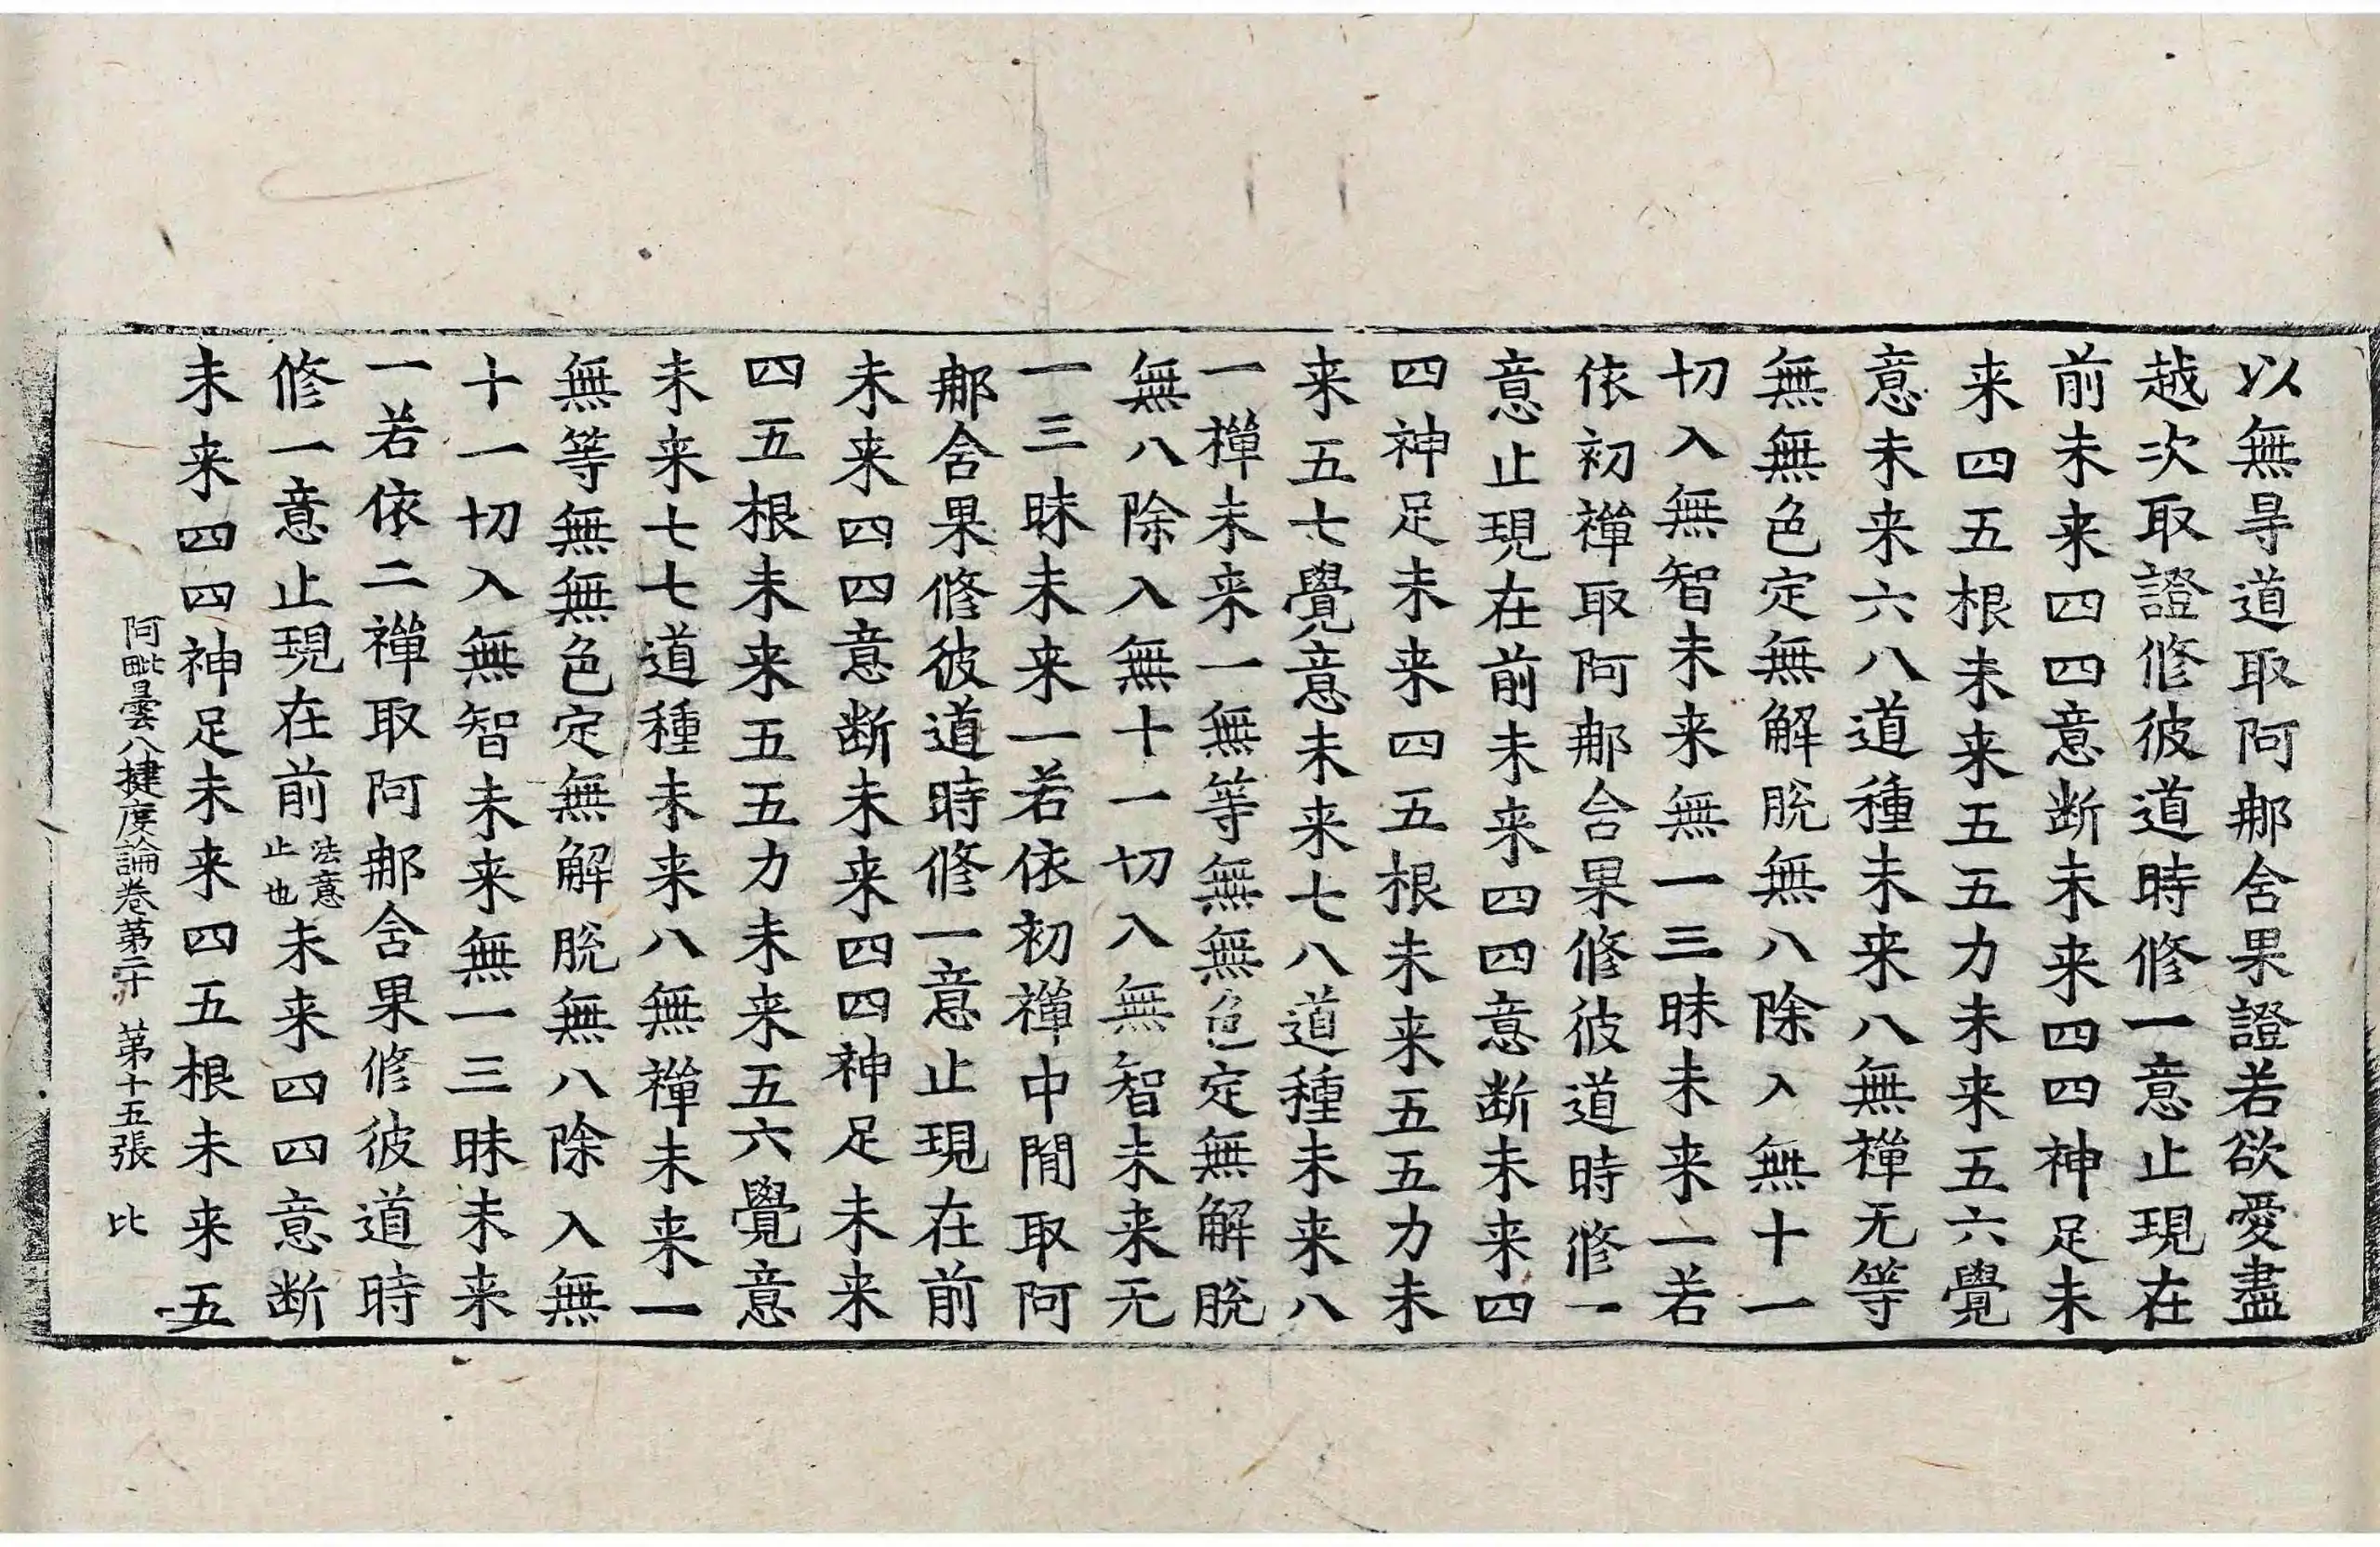 以無㝵道取阿那含果證若欲愛盡
越次取證修彼道時修一意止現在
前未来四四意断未来四四神足未
来四五根未来五五力未来五六覺
意未来六八道種未来八無禪无等
無無色定無解脫無八除入無十一
切入無智未来無一三昧未来一若
依初禪取阿那含果修彼道時修一
意止現在前未来四四意断未来四
四神足未来四五根未来五五力未
来五七覺意未来七八道種未来八
一禪未来一無等無無色定無解脫
無八除入無十一切入無智未来无
一三昧未来一若依初禪中間取阿
那含果修彼道時修一意止現在前
未来四四意断未来四四神足未来
四五根未来五五力未来五六覺意
未来七七道種未来八無禪未来一
無等無無色定無解脫無八除入無
十一切入無智未来無一三昧未来
一若依二禪取阿那含果修彼道時
修一意止現在前法意止也未来四四意断
未来四四神足未来四五根未来五
阿毗曇八揵度論卷第二十 第十五張 比